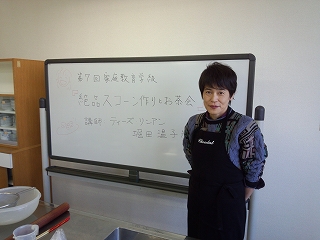 第7回家庭教育学級
絶品スコーン作りとお茶会
講師 ティーズ リンアン
堀田 温子